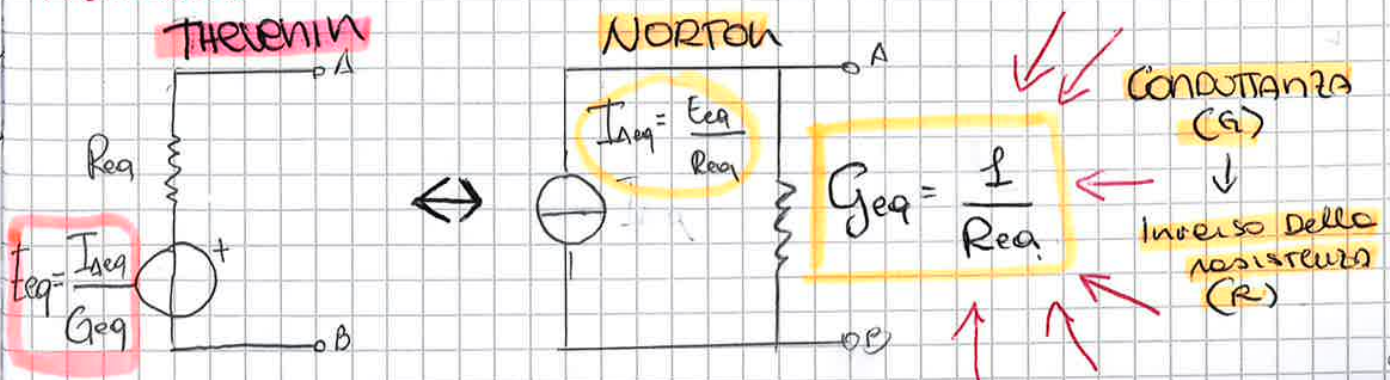 THEVENIN
A
Req
+
Eeq = IΔeq / Geq
B
NORTON
A
IΔeq = Eeq / Req
B
Geq = 1 / Req
CONDUTTANZA
(G)
↓
Inverso Della
resistenza
(R)